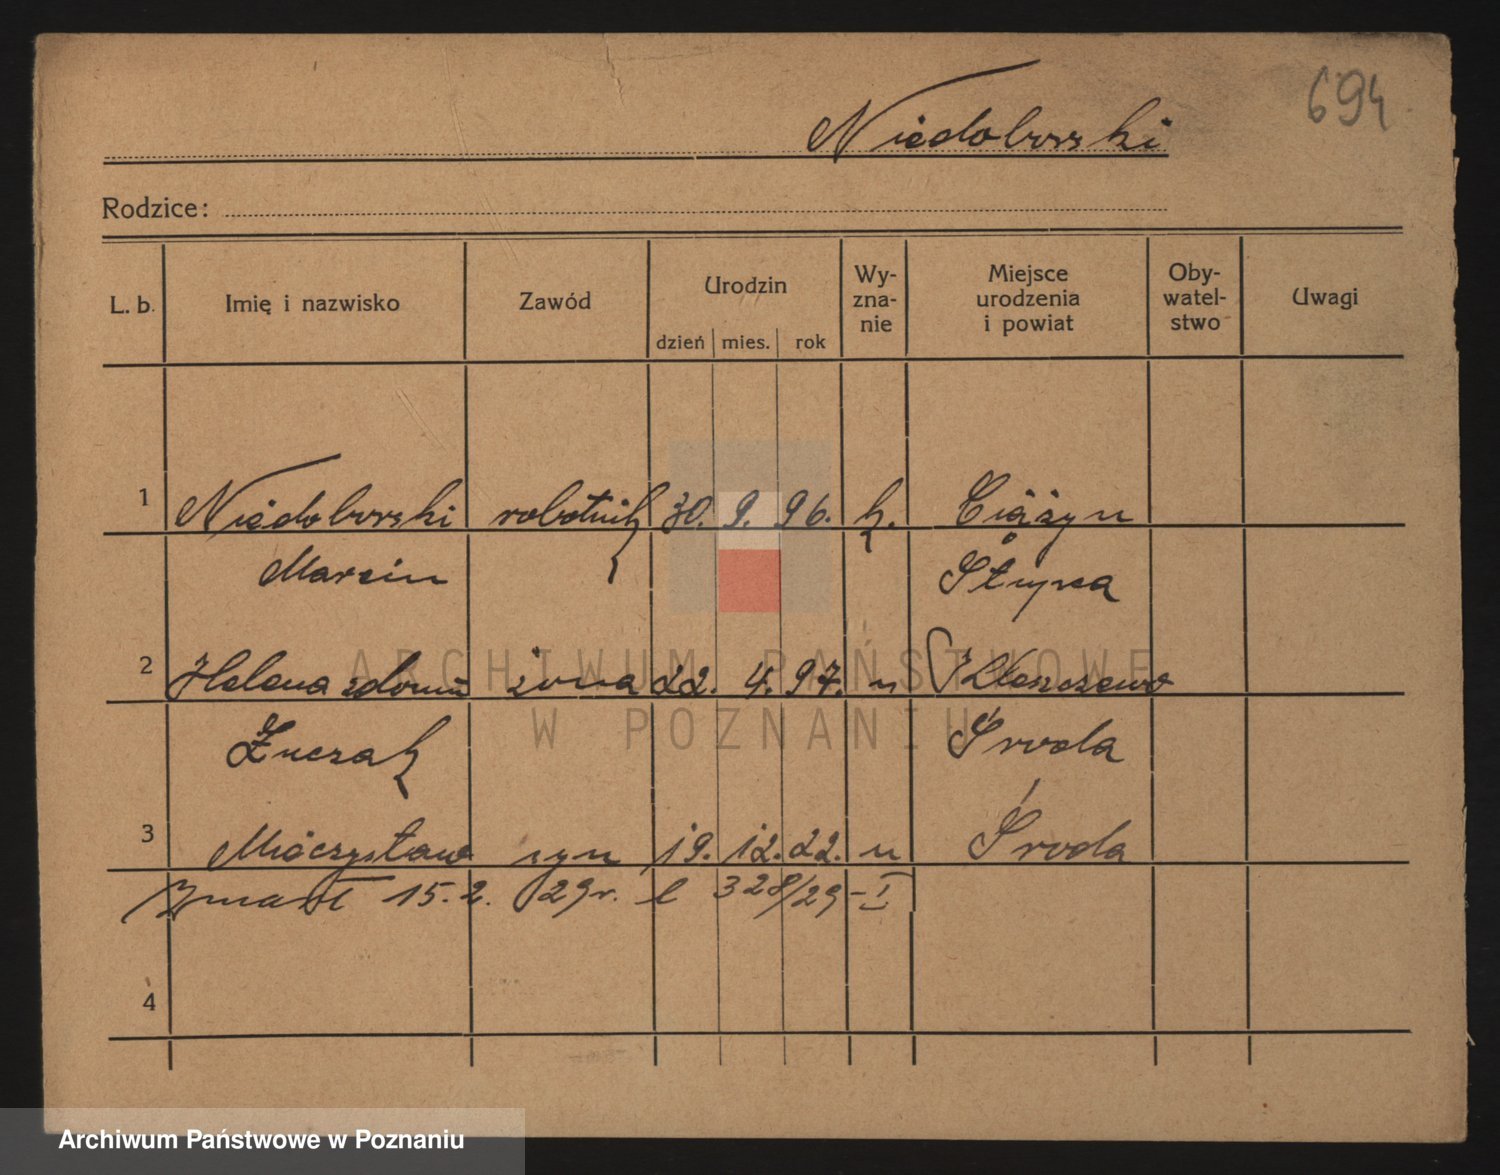 694
Niedoborski
Rodzice:
L. b. Imię i nazwisko Zawód Urodzin dzień mies. rok Wy-zna-nie Miejsce urodzenia i powiat Oby-watel-stwo Uwagi
1 Niedoborski robotnik 30. 9. 96. k. Ciążyn
Marcin Słupca
2 Helena z domu żona 22. 4. 97. " Kleszczewo
Łuczak Środa
3 Mieczysław syn 19. 12. 22. " Środa
Zmarł 15. 2. 29 r. l 328/29 - I
4
ARCHIWUM PAŃSTWOWE
W POZNANIU
Archiwum Państwowe w Poznaniu